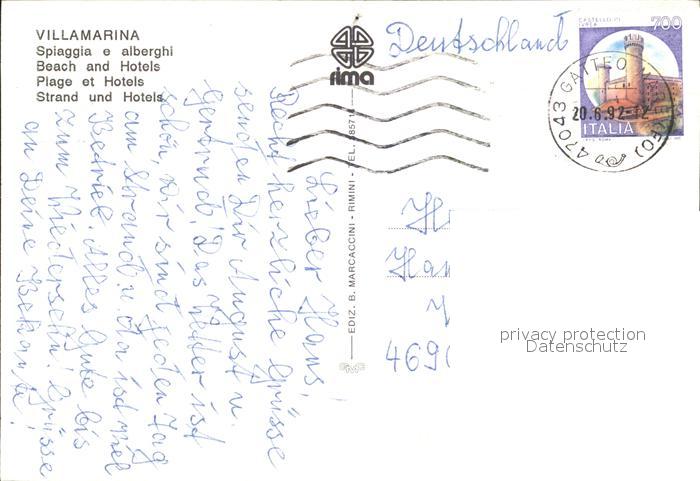 VILLAMARINA
Spiaggia e alberghi
Beach and Hotels
Plage et Hotels
Strand und Hotels
rima
Deutschland
CASTELLO DI
IVREA
700
ITALIA
47043 GATTEO (FO)
20.6.92-12
EDIZ. B. MARCACCINI - RIMINI - TEL.
Lieber Hans!
Recht herzliche Grüsse
senden Dir August u.
Gertrud! Das Wetter ist
schön, wir sind jeden Tag
am Strand u. da ist viel
Betrieb. Alles Gute bis
zum Wiedersehn! Grüsse
an Deine Bekannte!
H
Han
469
privacy protection
Datenschutz